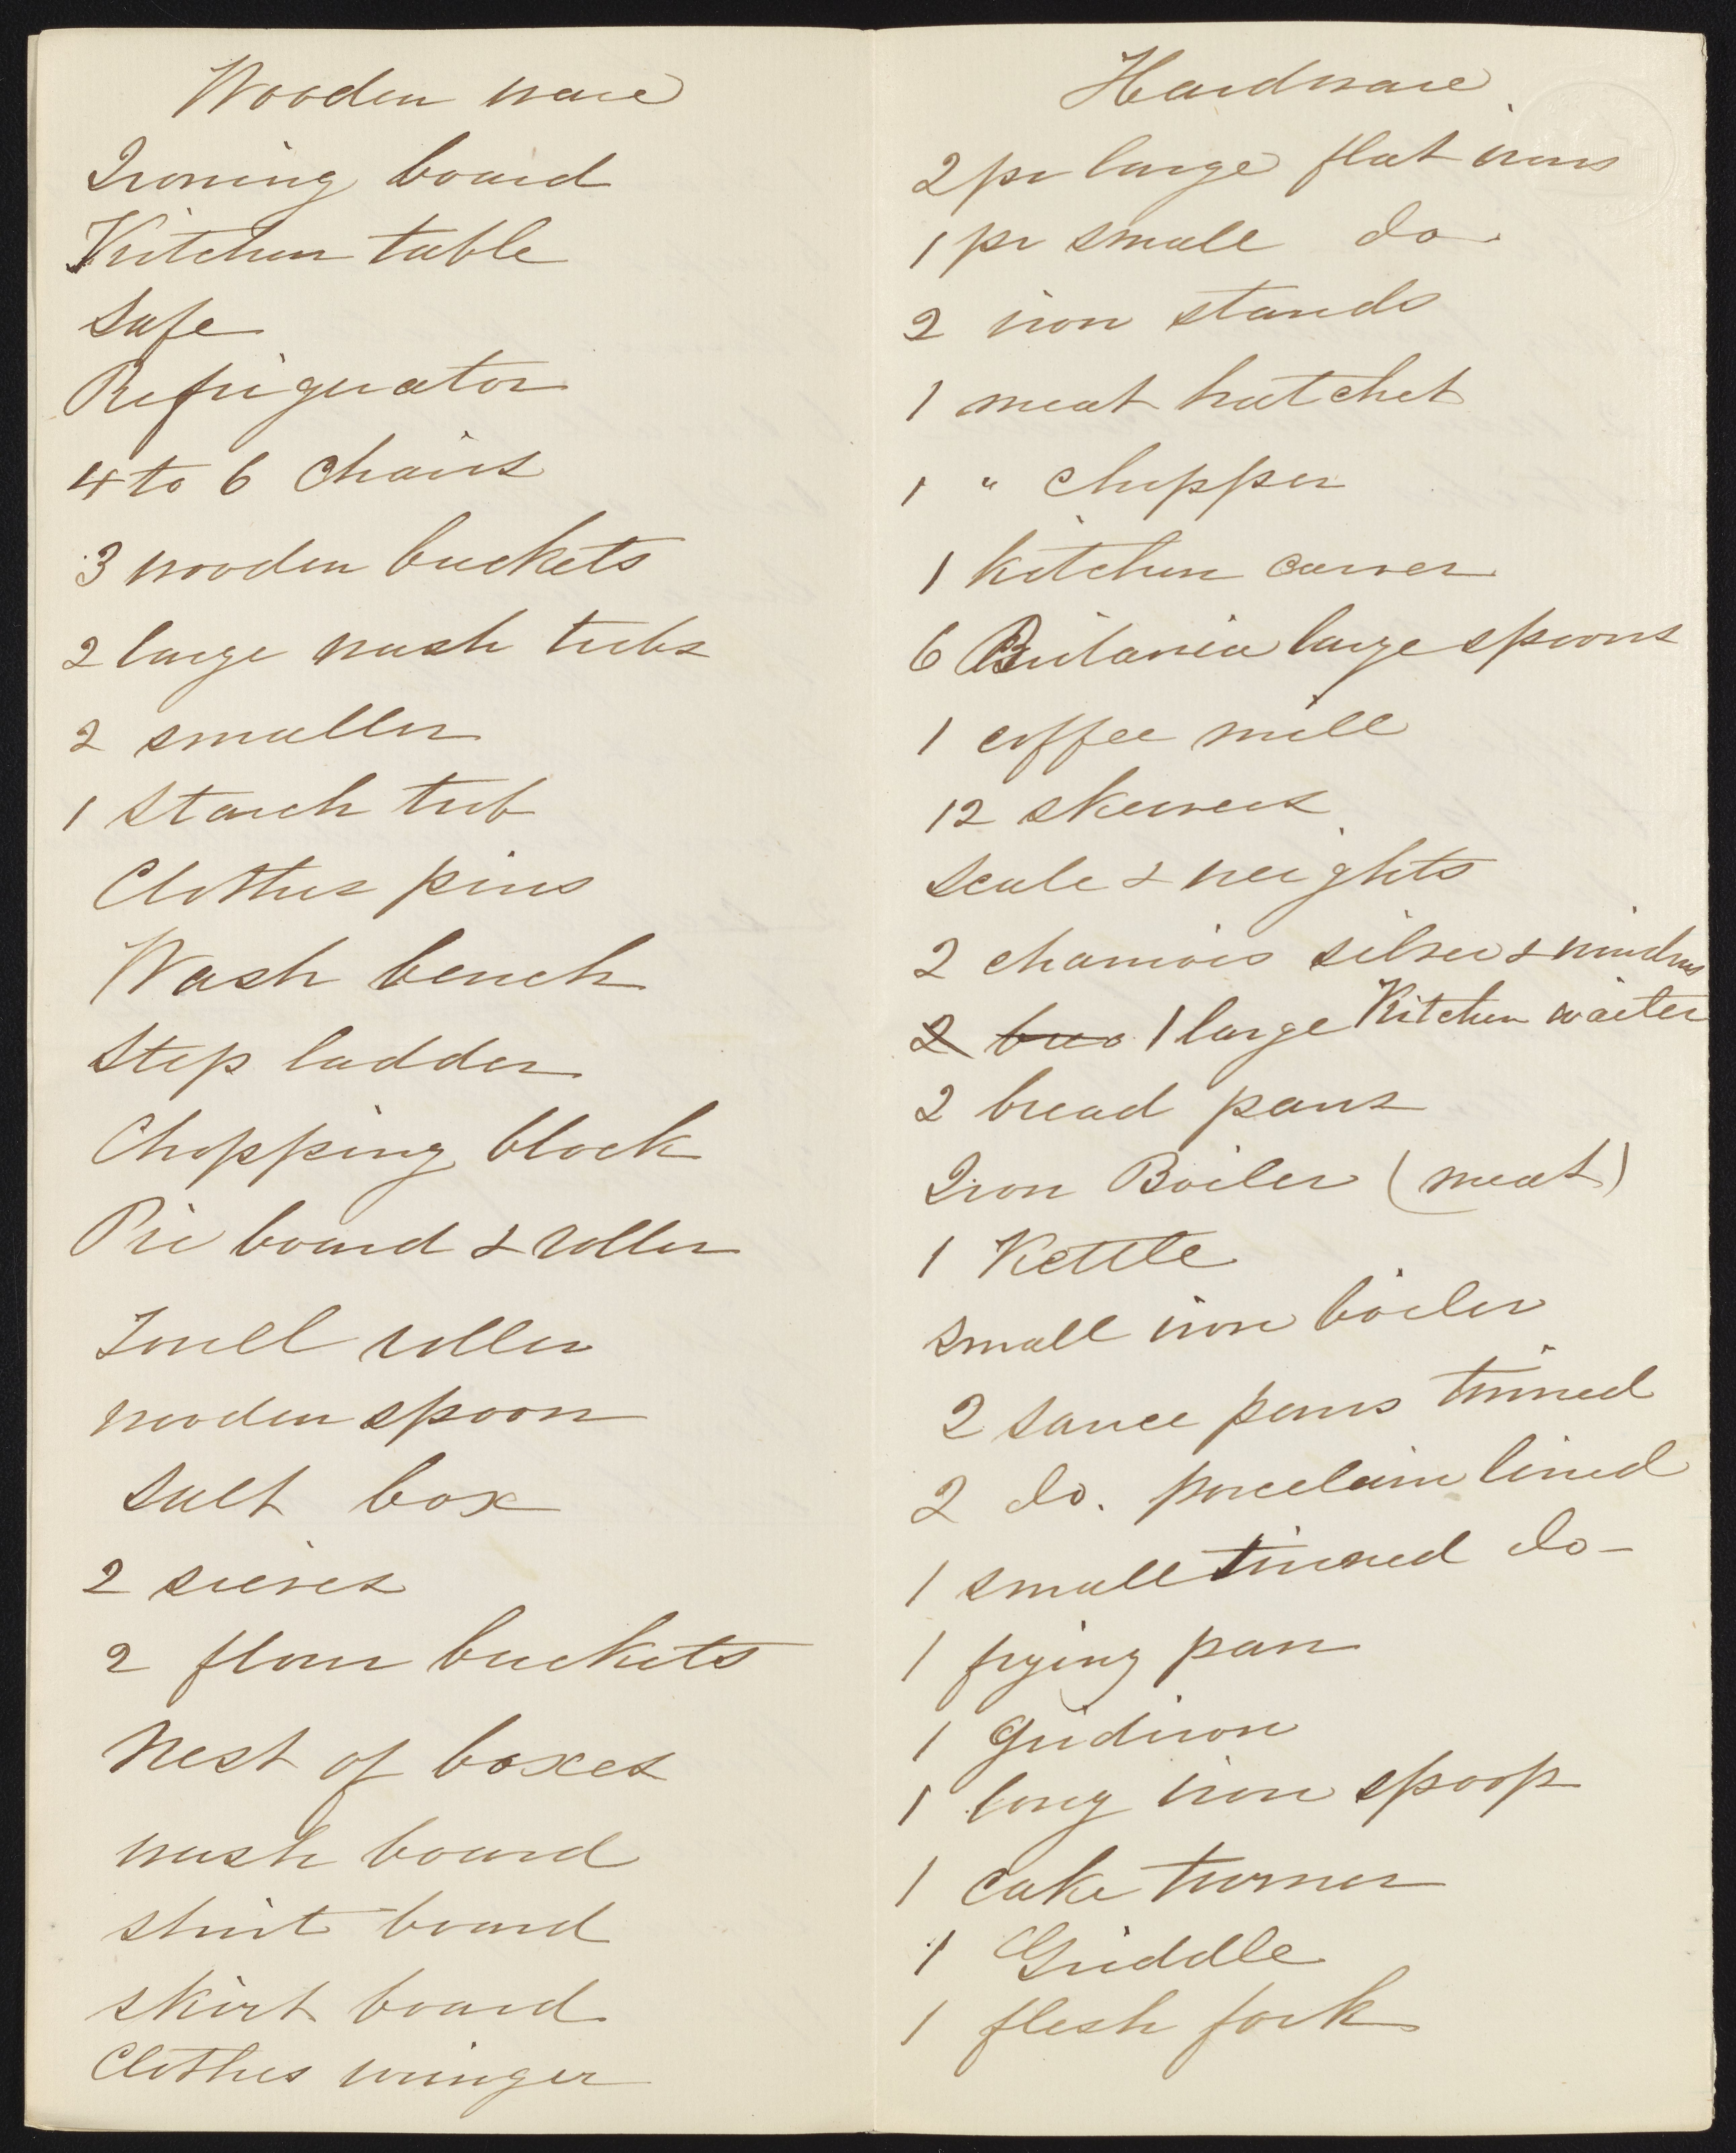 Wooden ware
Ironing board
Kitchen table
Safe
Refrigerator
4 to 6 Chairs
3 wooden buckets
2 large wash tubs
2 smaller
1 Starch tub
Clothes pins
Wash bench
Step ladder
Chopping block
Pie board & roller
Towell roller
wooden spoon
Salt box
2 sieves
2 flour buckets
Nest of boxes
wash board
shirt board
skirt board
Clothes wringer
Hardware
2 pr large flat irons
1 pr small do
2 iron stands
1 meat hatchet
1 " chopper
1 kitchen carver
6 Britania large spoons
1 coffee mill
12 skewers
Scale & weights
2 chamois silver & windows
2 1 large Kitchen waiter
2 bread pans
Iron Boiler (meat)
1 Kettle
Small iron boiler
2 sauce pans tinned
2 do. porcelain lined
1 small tinned do -
1 frying pan
1 Gridiron
1 long iron spoon
1 cake turner
1 Griddle
1 flesh fork